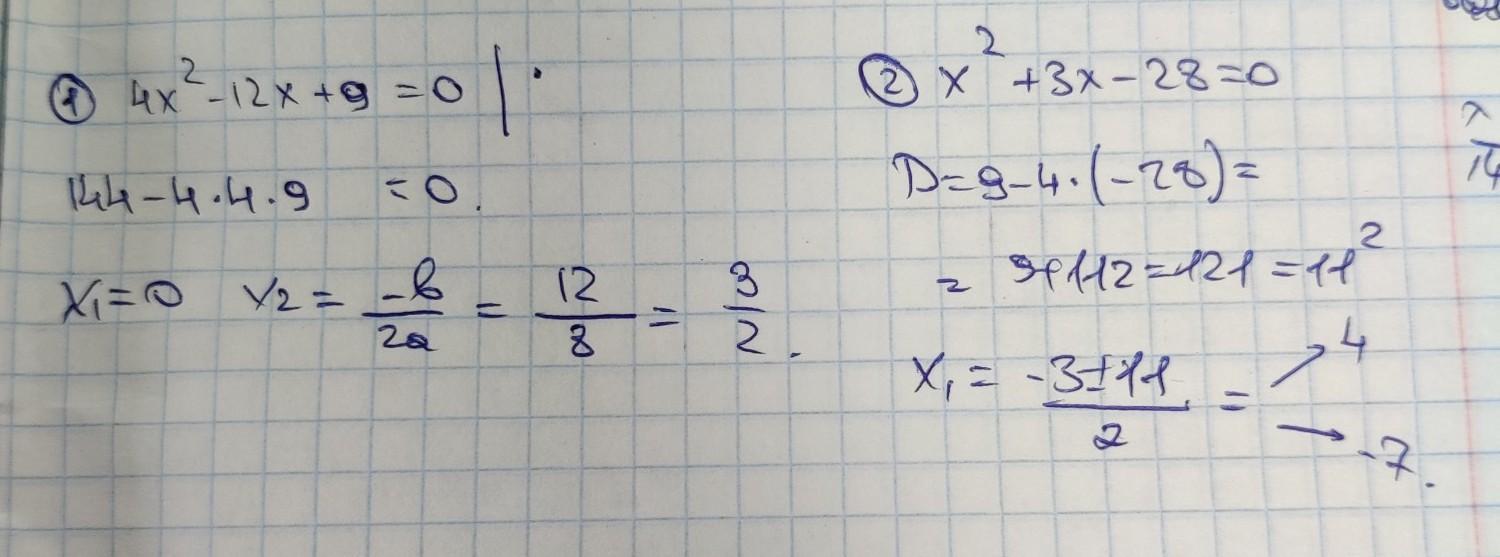 ① 4x² - 12x + 9 = 0 |
144 - 4 · 4 · 9 = 0.
x₁ = 0 x₂ = -b/2a = 12/8 = 3/2.
② x² + 3x - 28 = 0
D = 9 - 4 · (-28) =
= 9 + 112 = 121 = 11²
x₁ = (-3 ± 11)/2 = ↗ 4
→ -7.
14